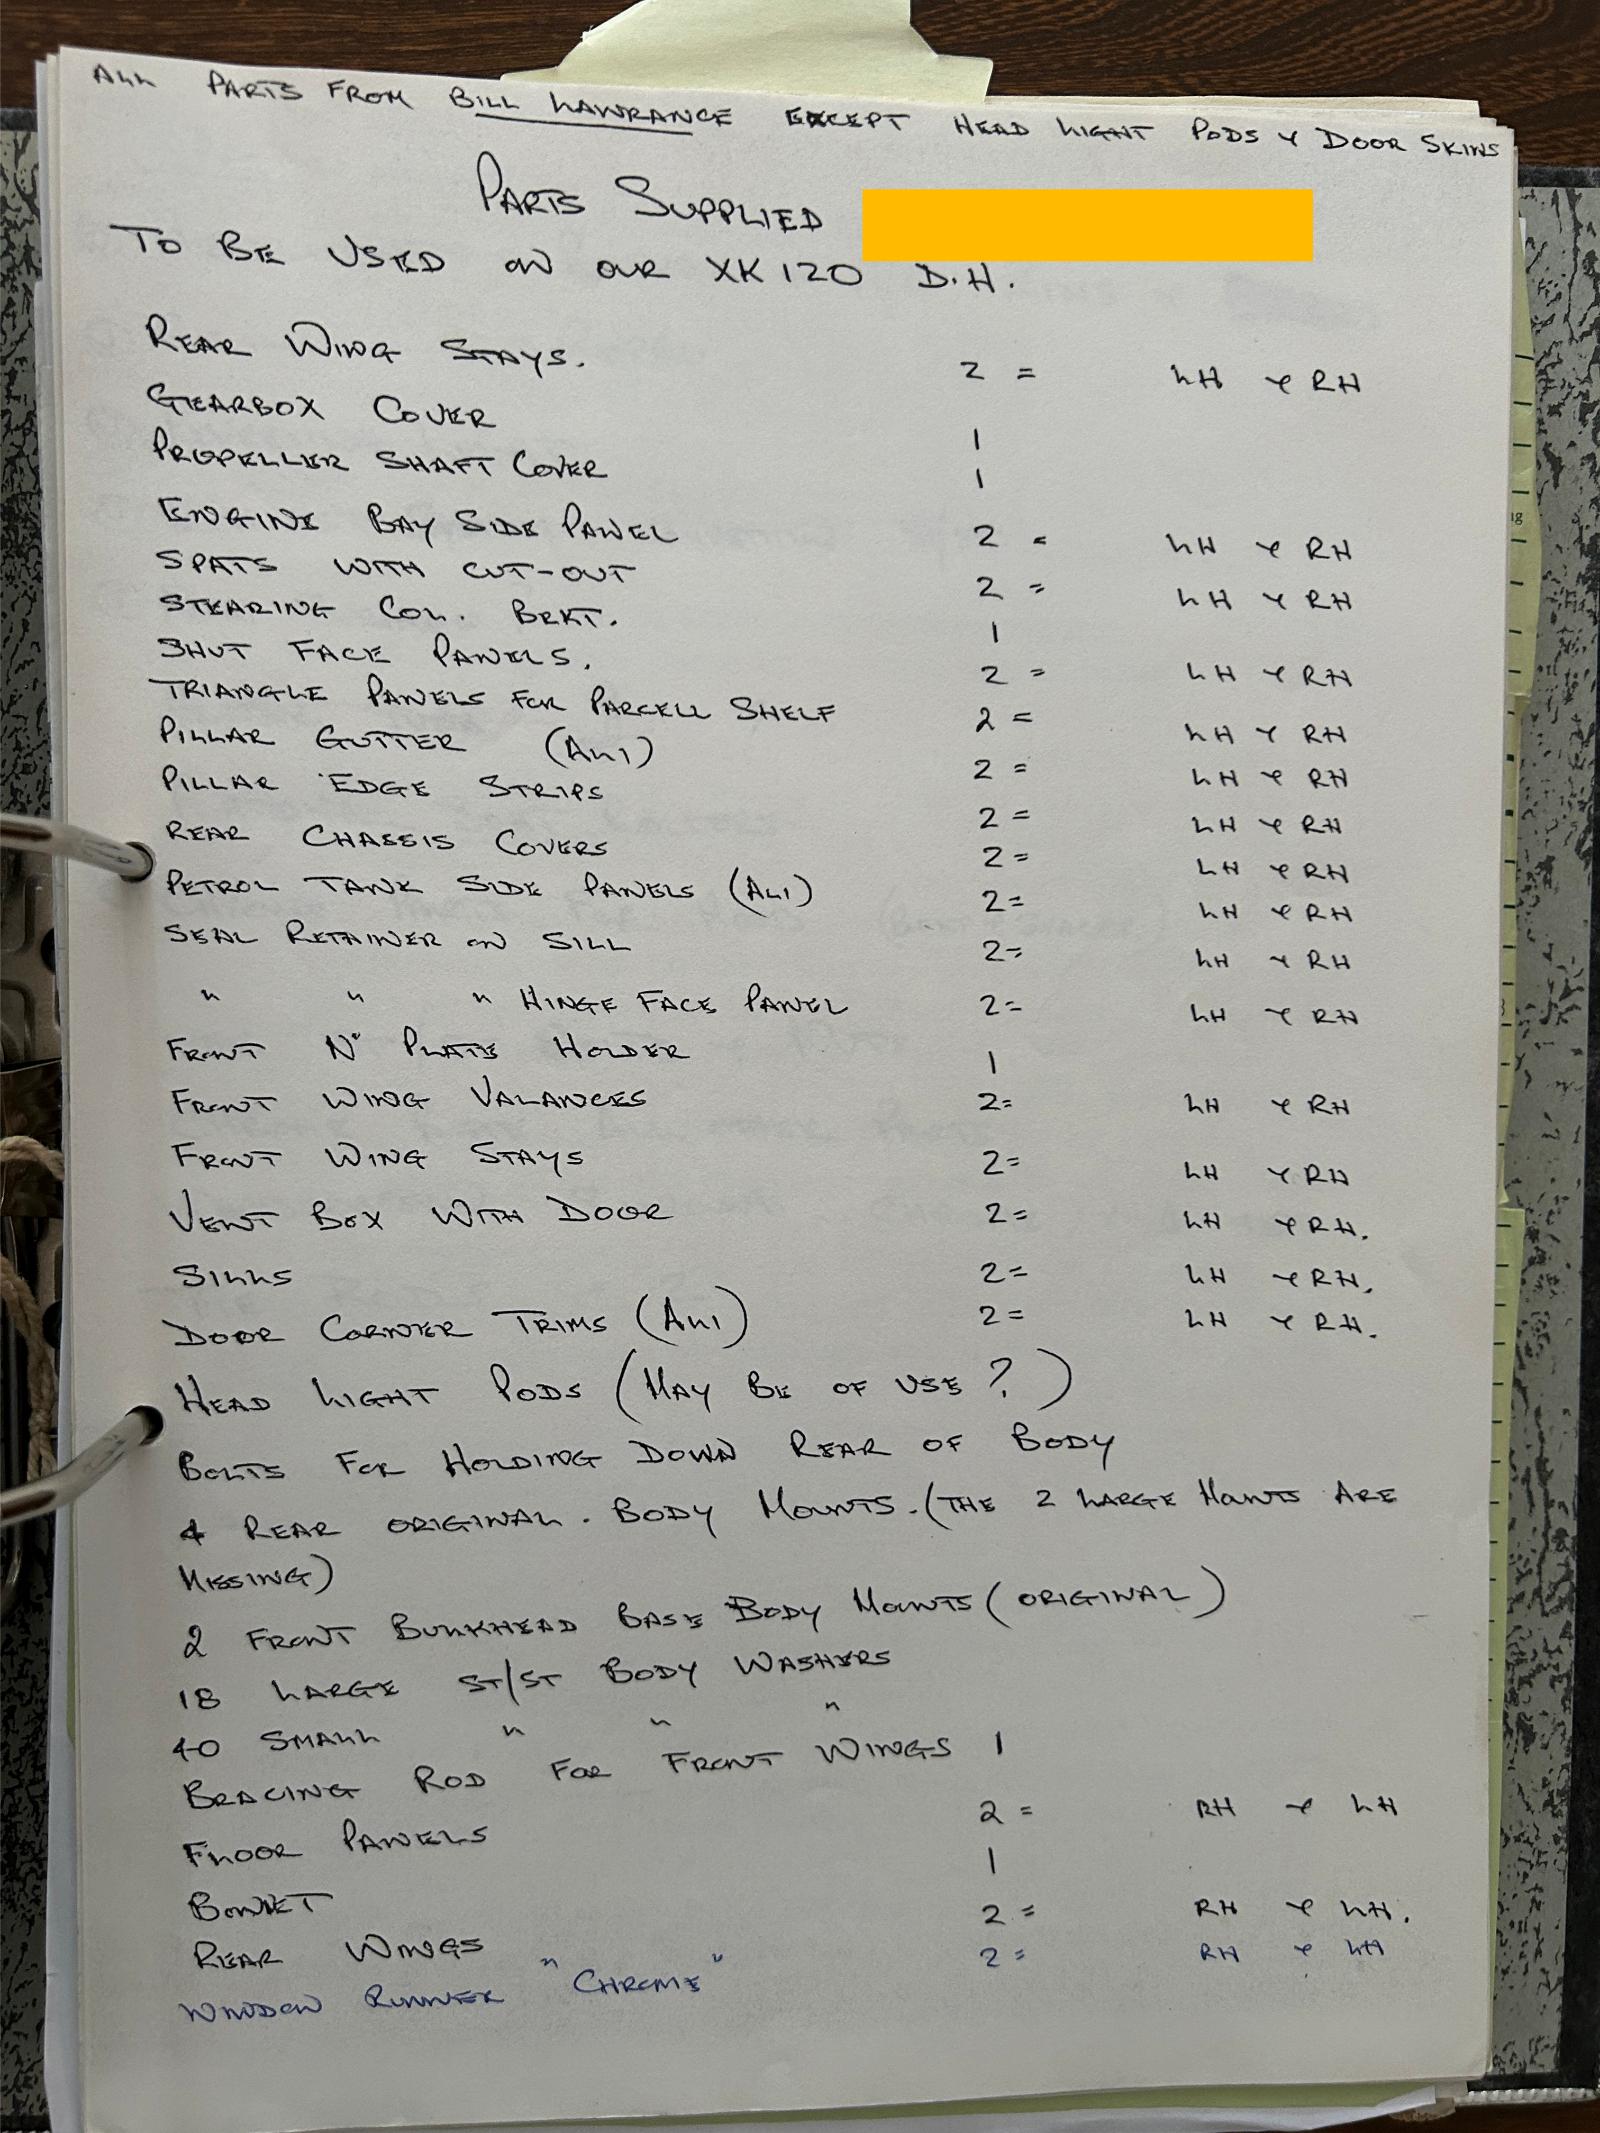 ALL PARTS FROM BILL LAWRANCE EXCEPT HEAD LIGHT PODS & DOOR SKINS
PARTS SUPPLIED
TO BE USED ON OUR XK120 D.H.
REAR WING STAYS. 2 = LH & RH
GEARBOX COVER 1
PROPELLER SHAFT COVER 1
ENGINE BAY SIDE PANEL 2 = LH & RH
SPATS WITH CUT-OUT 2 = LH & RH
STEARING COL. BRKT. 1
SHUT FACE PANELS. 2 = LH & RH
TRIANGLE PANELS FOR PARCELL SHELF 2 = LH & RH
PILLAR GUTTER (ALI) 2 = LH & RH
PILLAR EDGE STRIPS 2 = LH & RH
REAR CHASSIS COVERS 2 = LH & RH
PETROL TANK SIDE PANELS (ALI) 2 = LH & RH
SEAL RETAINER ON SILL 2 = LH & RH
" " " HINGE FACE PANEL 2 = LH & RH
FRONT No PLATE HOLDER 1
FRONT WING VALANCES 2 = LH & RH
FRONT WING STAYS 2 = LH & RH
VENT BOX WITH DOOR 2 = LH & RH.
SILLS 2 = LH & RH.
DOOR CORNER TRIMS (ALI) 2 = LH & RH.
HEAD LIGHT PODS (MAY BE OF USE?)
BOLTS FOR HOLDING DOWN REAR OF BODY
4 REAR ORIGINAL. BODY MOUNTS. (THE 2 LARGE MOUNTS ARE
MISSING)
2 FRONT BULKHEAD BASE BODY MOUNTS (ORIGINAL)
18 LARGE ST/ST BODY WASHERS
40 SMALL " " "
BRACING ROD FOR FRONT WINGS 1
FLOOR PANELS 2 = RH & LH
BONNET 1
REAR WINGS 2 = RH & LH.
WINDOW RUNNER "CHROME" 2 = RH & LH